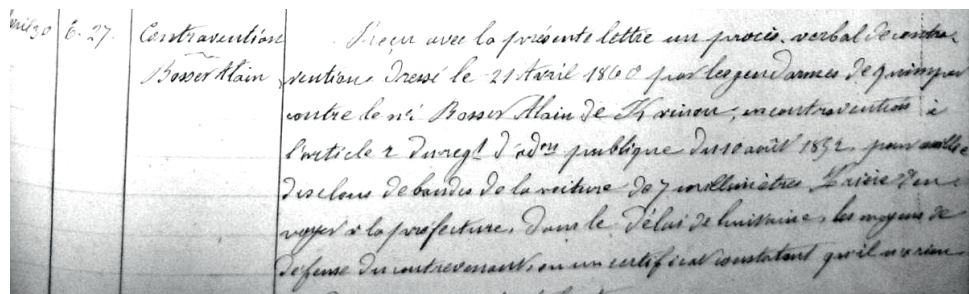 avril 30 E. 27. Contravention Reçu avec la présente lettre un procès verbal de contra-
Bosser Alain vention dressé le 21 Avril 1860 par les gendarmes de quimper
contre le né Bosser Alain de contravention à
l'article 2 du regt d'adon publique du 10 août 1852, pour
des clous de bandes de la voiture de 7 millimètres. Prière d'en
voyer à la préfecture, dans le délai de huitaine, les moyens de
défense du contrevenant, ou un certificat constatant qu'il n'a rien